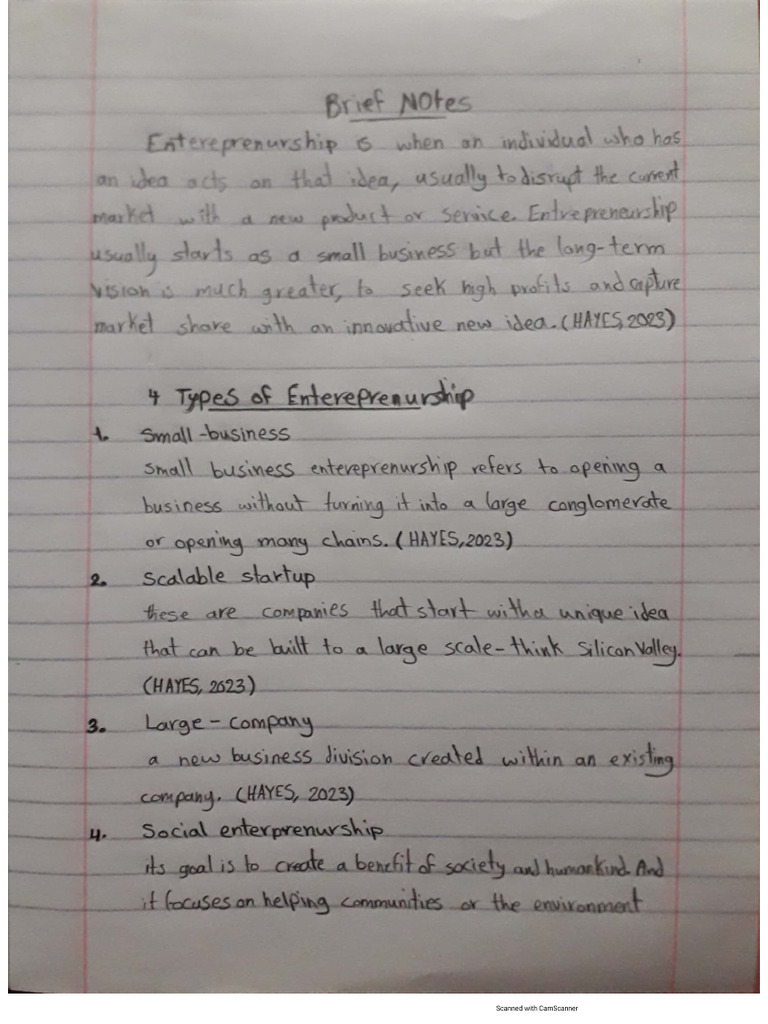 Brief Notes
Entereprenurship is when an individual who has
an idea acts on that idea, usually to disrupt the current
market with a new product or service. Entrepreneurship
usually starts as a small business but the long-term
vision is much greater, to seek high profits and capture
market share with an innovative new idea. (HAYES, 2023)
4 Types of Entereprenurship
1. Small-business
Small business entereprenurship refers to opening a
business without turning it into a large conglomerate
or opening many chains. (HAYES, 2023)
2. Scalable startup
these are companies that start with a unique idea
that can be built to a large scale-think Silicon Valley.
(HAYES, 2023)
3. Large-company
a new business division created within an existing
company. (HAYES, 2023)
4. Social enterprenurship
its goal is to create a benefit of society and humankind. And
it focuses on helping communities or the environment
Scanned with CamScanner